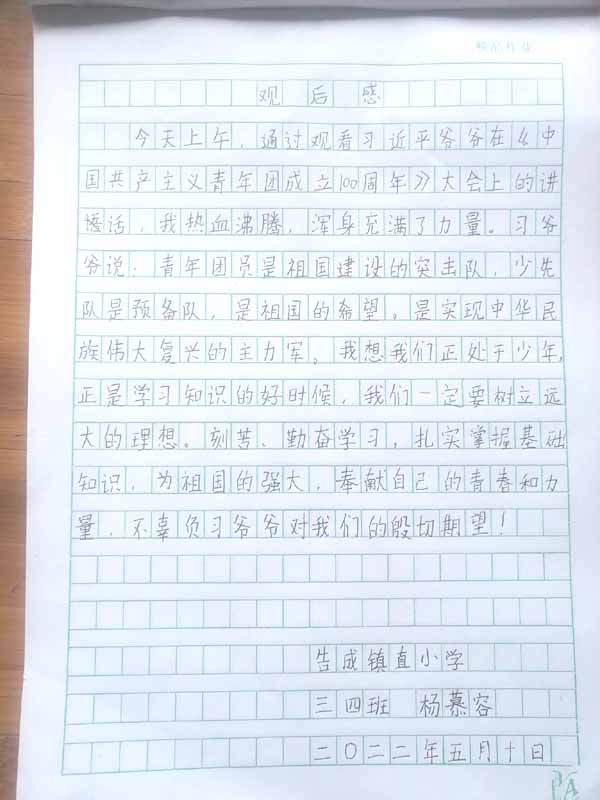 观后感
今天上午，通过观看习近平爷爷在《中
国共产主义青年团成立100周年》大会上的讲
话，我热血沸腾，浑身充满了力量。习爷
爷说：青年团员是祖国建设的突击队，少先
队是预备队，是祖国的希望，是实现中华民
族伟大复兴的主力军。我想我们正处于少年，
正是学习知识的好时候，我们一定要树立远
大的理想。刻苦、勤奋学习，扎实掌握基础
知识，为祖国的强大，奉献自己的青春和力
量，不辜负习爷爷对我们的殷切期望！
告成镇直小学
三四班 杨慕容
二〇二二年五月十日